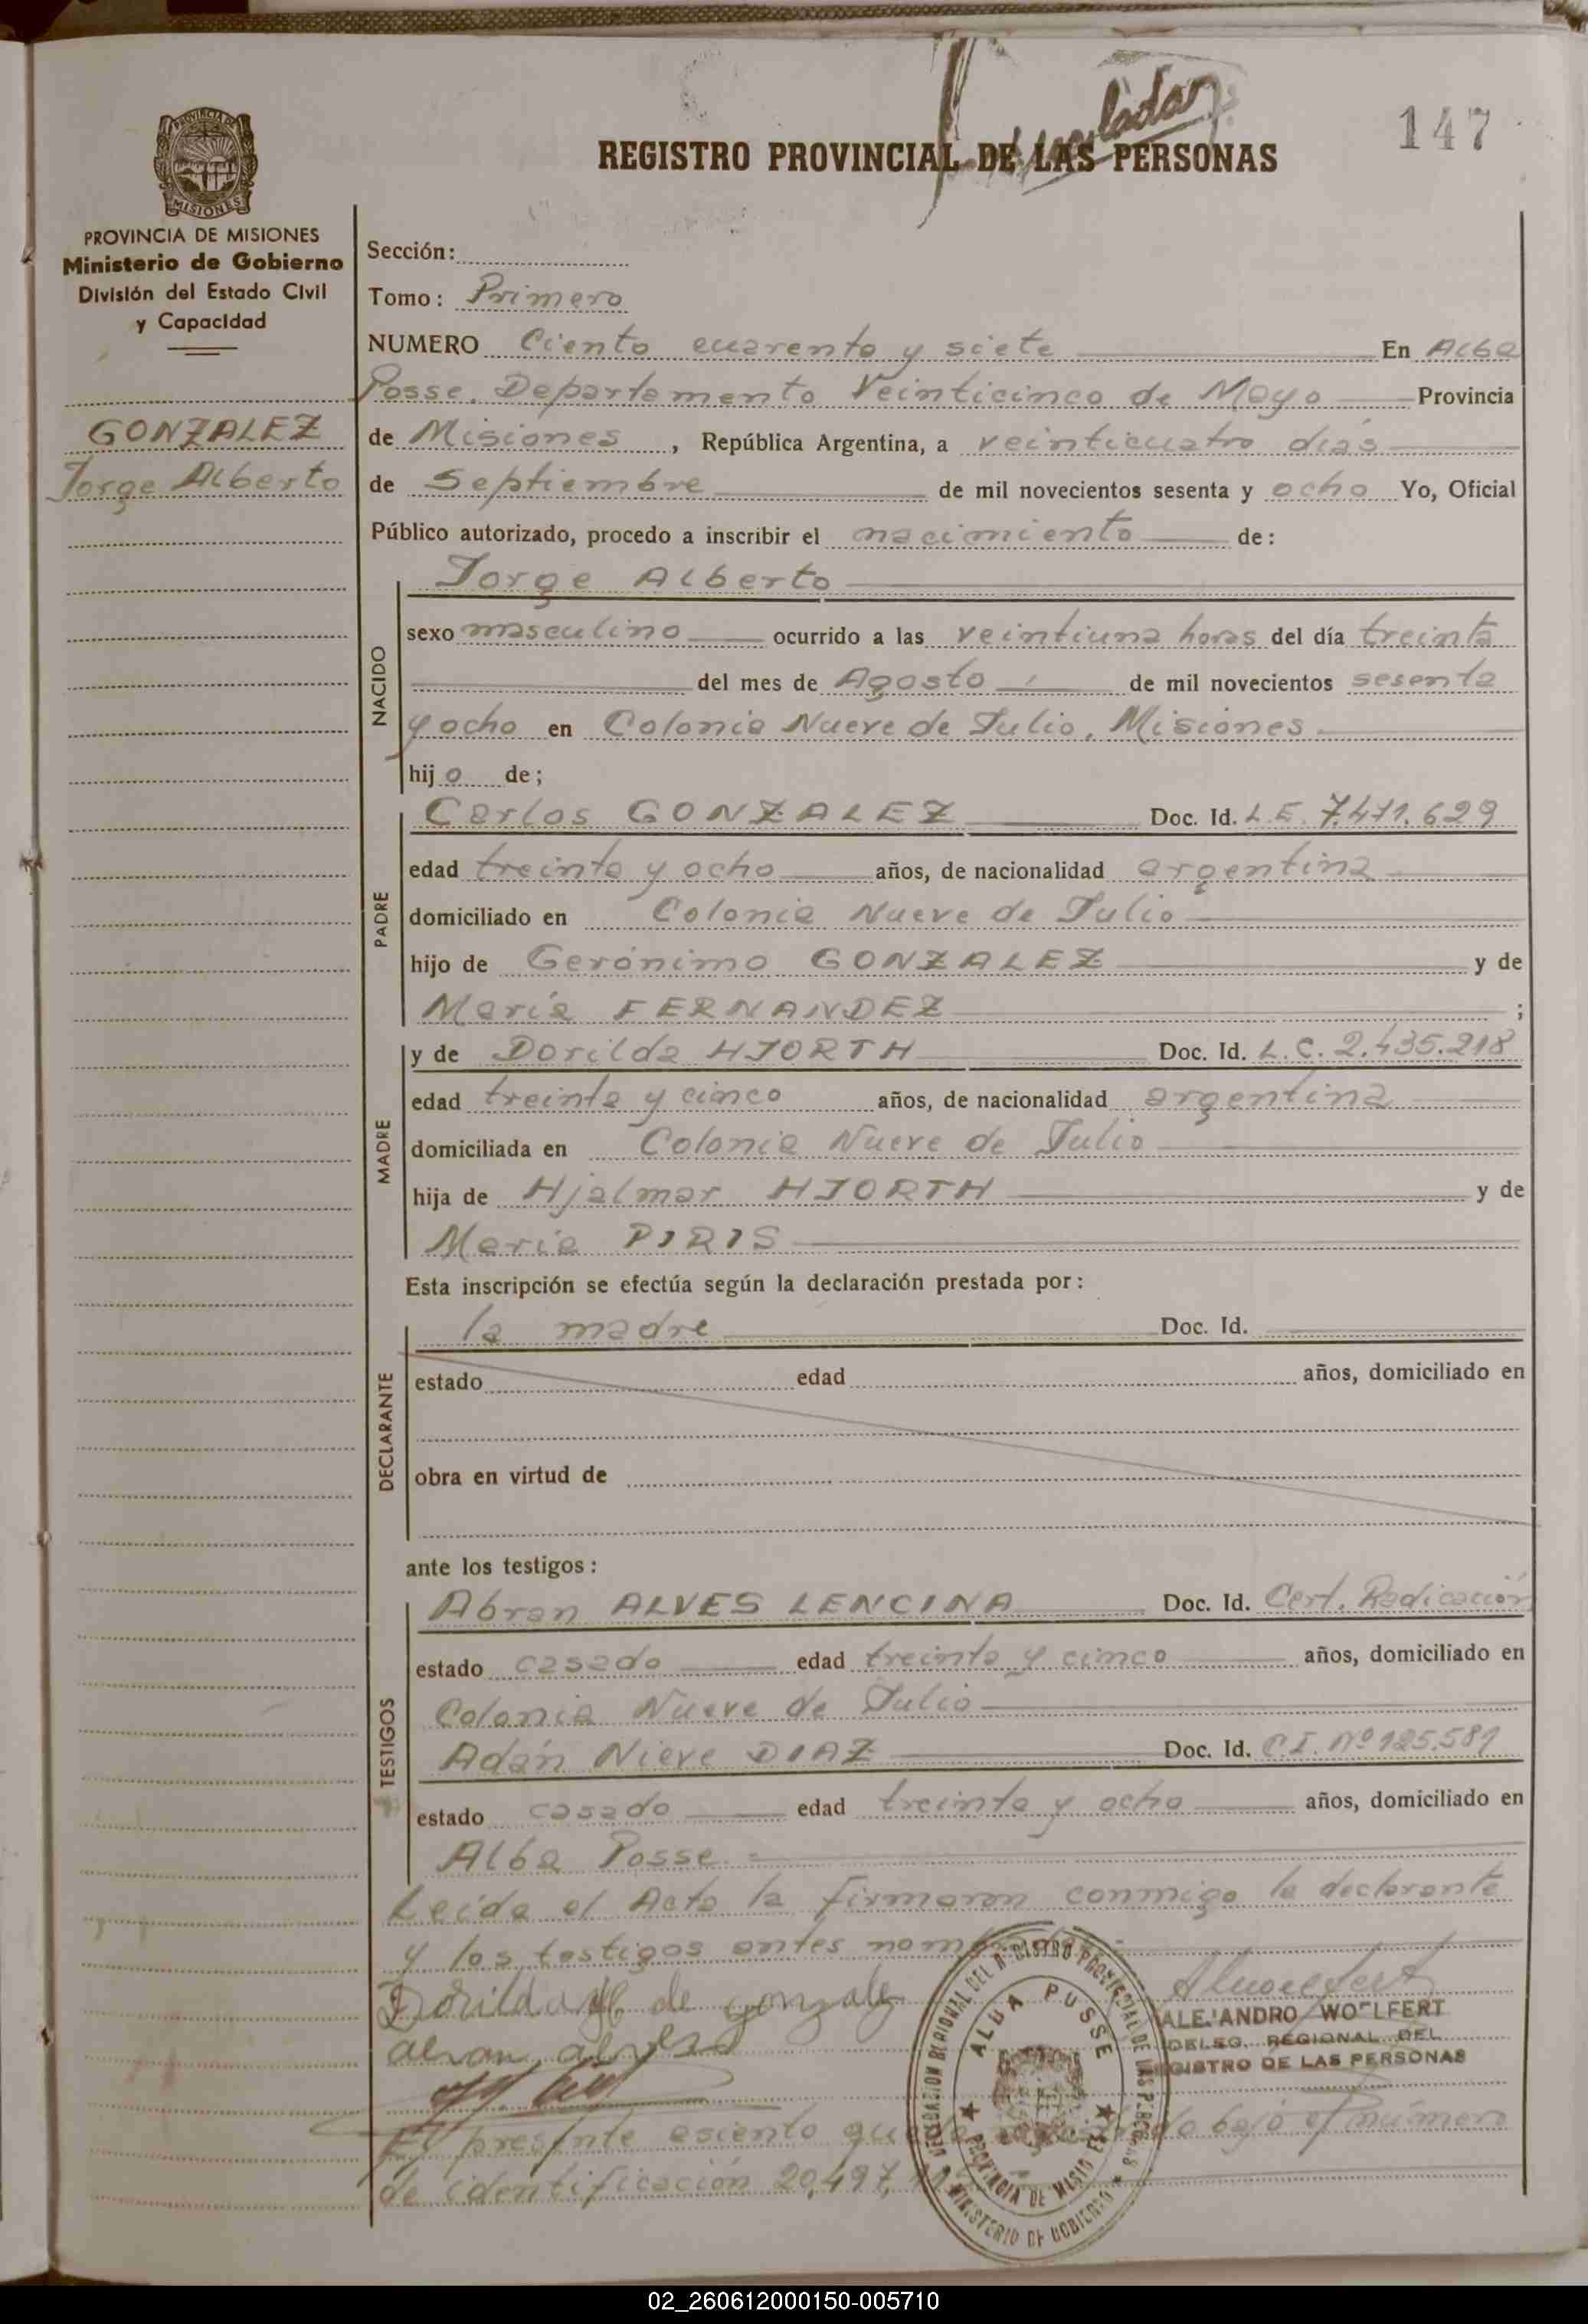 147
REGISTRO PROVINCIAL DE LAS PERSONAS
PROVINCIA DE MISIONES
Ministerio de Gobierno
División del Estado Civil
y Capacidad
GONZALEZ
Jorge Alberto
Sección:
Tomo: Primero
NUMERO Ciento cuarenta y siete En Alba
Posse, Departamento Veinticinco de Mayo Provincia
de Misiones, República Argentina, a veinticuatro días
de Septiembre de mil novecientos sesenta y ocho Yo, Oficial
Público autorizado, procedo a inscribir el nacimiento de:
Jorge Alberto
NACIDO
sexo masculino ocurrido a las veintiuna horas del día treinta
del mes de Agosto de mil novecientos sesenta
y ocho en Colonia Nueve de Julio, Misiones
hijo de;
PADRE
Carlos GONZALEZ Doc. Id. L.E. 7.471.629
edad treinta y ocho años, de nacionalidad argentina
domiciliado en Colonia Nueve de Julio
hijo de Gerónimo GONZALEZ y de
María FERNANDEZ ;
MADRE
y de Dorilda HJORTH Doc. Id. L.C. 2.435.218
edad treinta y cinco años, de nacionalidad argentina
domiciliada en Colonia Nueve de Julio
hija de Hjalmar HJORTH y de
María PIRIS
Esta inscripción se efectúa según la declaración prestada por:
DECLARANTE
la madre Doc. Id.
estado edad años, domiciliado en
obra en virtud de
ante los testigos:
TESTIGOS
Abran ALVES LENCINA Doc. Id. Cert. Radicación
estado casado edad treinta y cinco años, domiciliado en
Colonia Nueve de Julio
Adán Nieve DIAZ Doc. Id. C.I. Nº 125.581
estado casado edad treinta y ocho años, domiciliado en
Alba Posse
Leída el Acta la firmaron conmigo la declarante
y los testigos antes
Dorilda de gonzalez
ALEJANDRO WOLFERT
DELEG. REGIONAL DEL
REGISTRO DE LAS PERSONAS
DELEGACION REGIONAL DEL REGISTRO PROVINCIAL DE LAS PERSONAS
MINISTERIO DE GOBIERNO
ALBA POSSE
PROVINCIA DE MISIONES
El presente asiento bajo el número
de identificación 20.497.
02_260612000150-005710